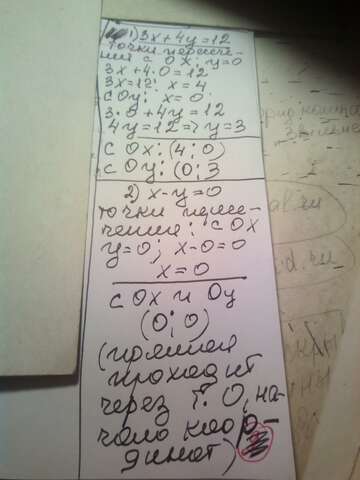 1) 3x+4y=12
точки пересече-
ния с OX: y=0
3x+4·0=12
3x=12; x=4
с Oy: x=0
3·0+4y=12
4y=12=>y=3
с Ox: (4;0)
с Oy: (0;3
2) x-y=0
точки пересе-
чения: с OX
y=0; x-0=0
x=0
с Ox и Oy
(0;0)
(прямая
проходит
через т. O, на-
чало коор-
динат)
al.ru
d.ru